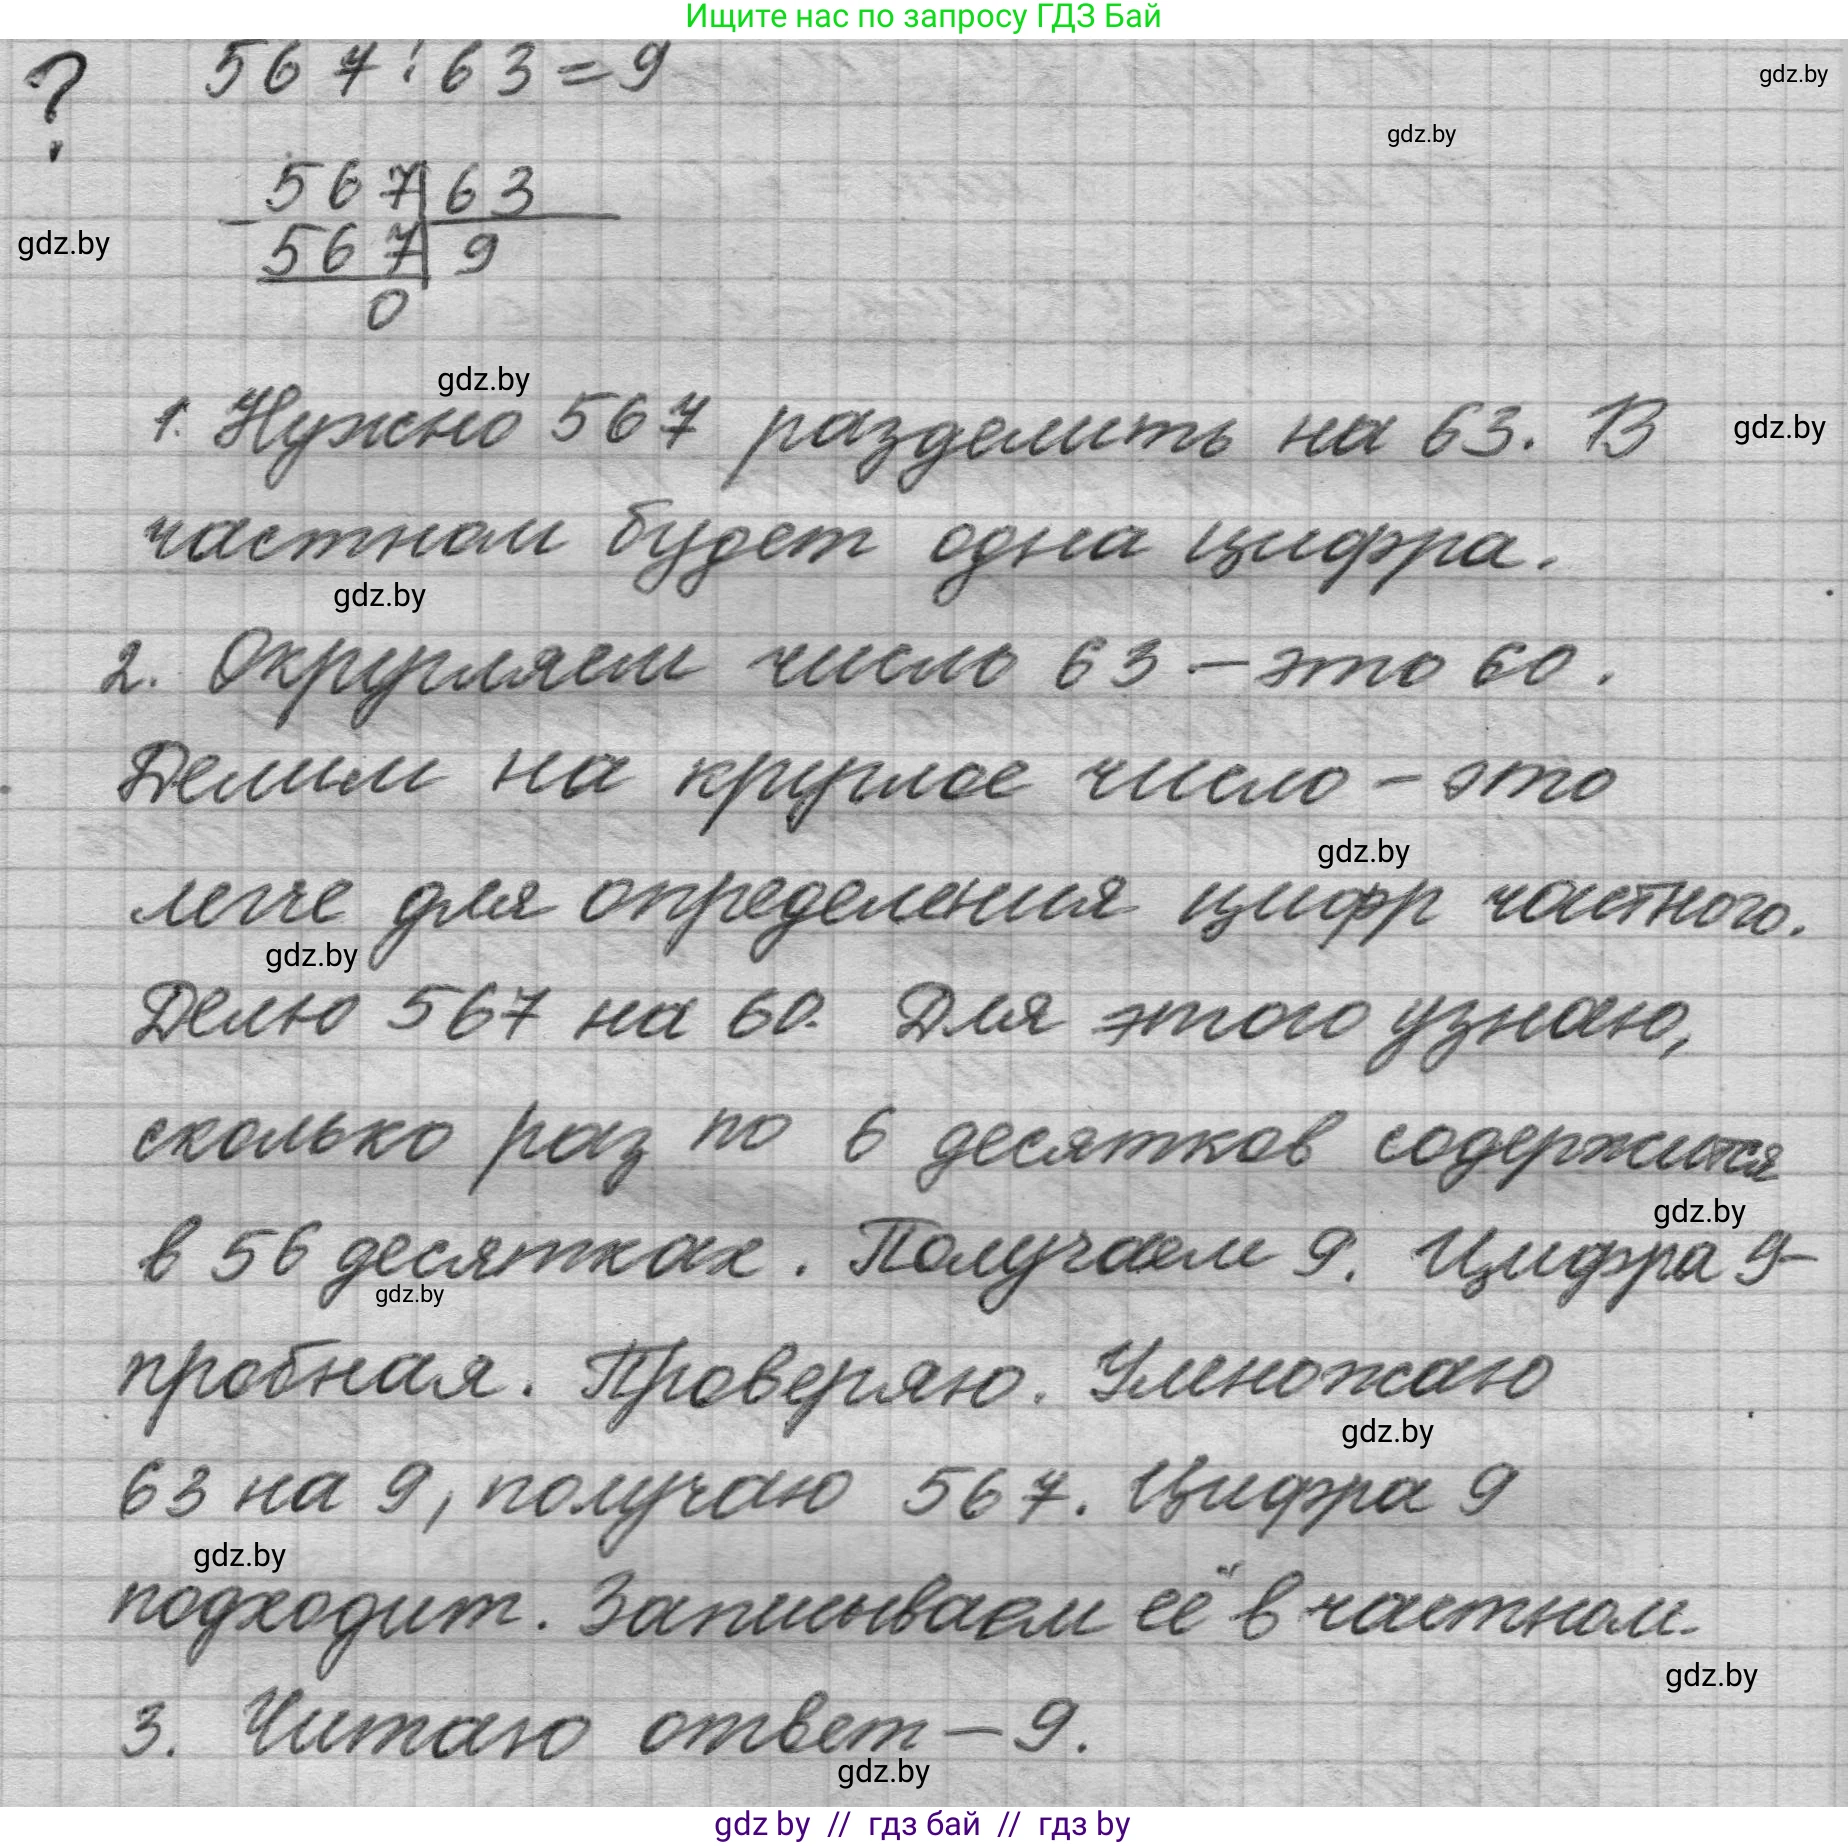 Ищите нас по запросу ГДЗ Бай
? 567 : 63 = 9
gdz.by
gdz.by
- 567 | 63
gdz.by
567 | 9
0
gdz.by
1. Нужно 567 разделить на 63. В
gdz.by
частном будет одна цифра.
gdz.by
2. Округляем число 63 – это 60.
Делим на круглое число – это
gdz.by
легче для определения цифр частного.
gdz.by
Делю 567 на 60. Для этого узнаю,
сколько раз по 6 десятков содержится
gdz.by
в 56 десятках. Получаем 9. Цифра 9–
gdz.by
пробная. Проверяю. Умножаю
gdz.by
63 на 9, получаю 567. Цифра 9
gdz.by
подходит. Записываем её в частном.
gdz.by
3. Читаю ответ – 9.
gdz.by
gdz by // гдз бай // гдз by